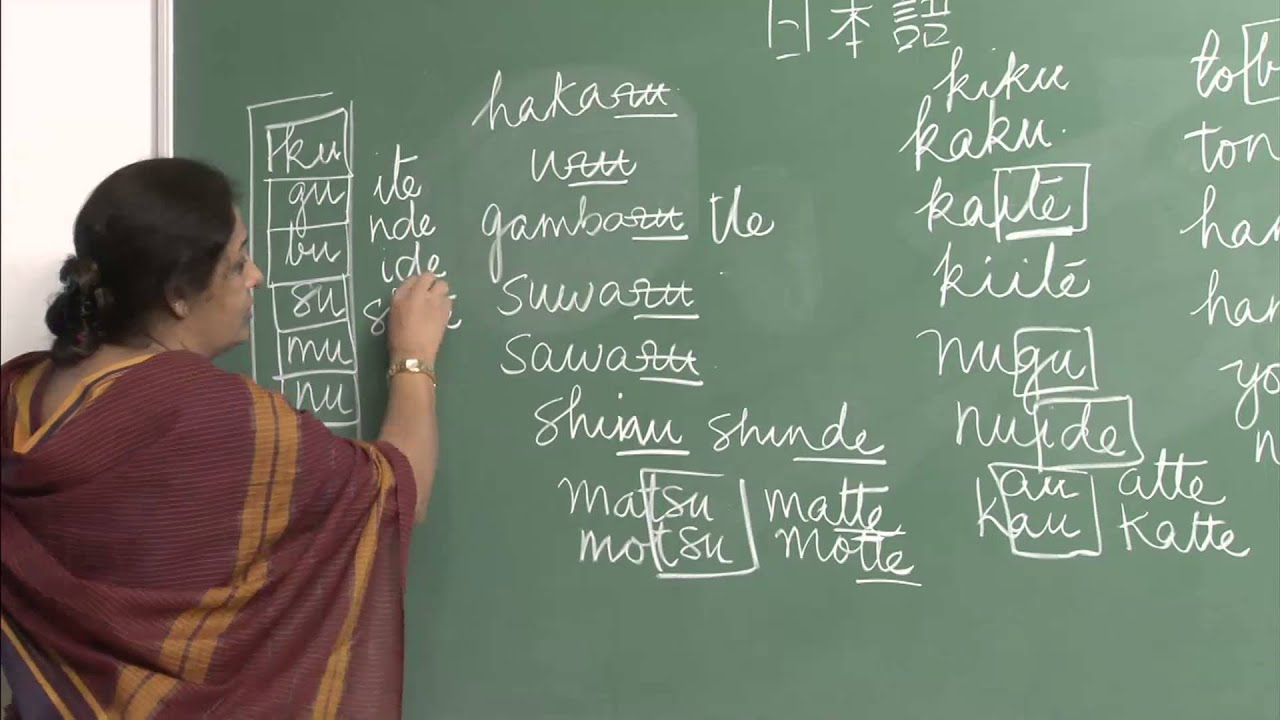 日本語
ku
gu
bu
su
mu
nu
ite
nde
ide
hakaru
uru
gambaru tte
suwaru
sawaru
shinu shinde
matsu matte
motsu motte
kiku
kaku.
kaite
kiite
nugu
nuide
au atte
kau katte